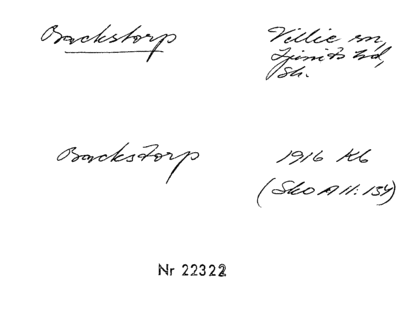 Backstorp
Villie sn,
Ljunits hd,
Sk.
Backstorp
1916 Kb
(Sko A II: 154)
Nr 22322